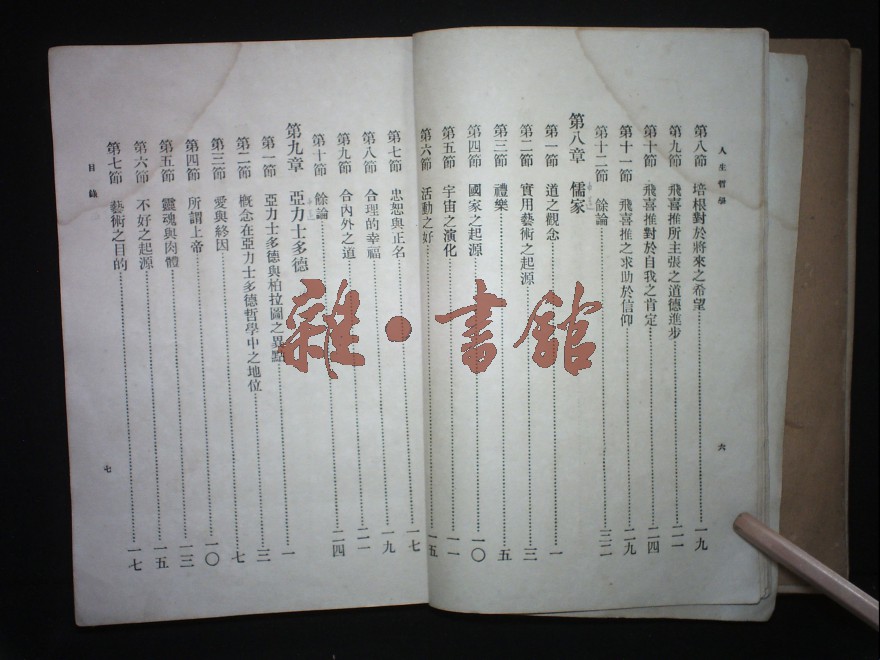 人生哲學
六
第八節　培根對於將來之希望⋯⋯一九
第九節　飛喜推所主張之道德進步⋯⋯二一
第十節　飛喜推對於自我之肯定⋯⋯二四
第十一節　飛喜推之求助於信仰⋯⋯二九
第十二節　餘論⋯⋯三二
第八章　儒家
第一節　道之觀念⋯⋯一
第二節　實用藝術之起源⋯⋯三
第三節　禮樂⋯⋯五
第四節　國家之起源⋯⋯一〇
第五節　宇宙之演化⋯⋯一一
第六節　活動之好⋯⋯一五
第七節　忠恕與正名⋯⋯一七
第八節　合理的幸福⋯⋯一九
第九節　合內外之道⋯⋯二一
第十節　餘論⋯⋯二四
第九章　亞力士多德
第一節　亞力士多德與柏拉圖之異點⋯⋯一
第二節　概念在亞力士多德哲學中之地位⋯⋯三
第三節　愛與終因⋯⋯七
第四節　所謂上帝⋯⋯一〇
第五節　靈魂與肉體⋯⋯一三
第六節　不好之起源⋯⋯一五
第七節　藝術之目的⋯⋯一七
目錄
七
雜•書館